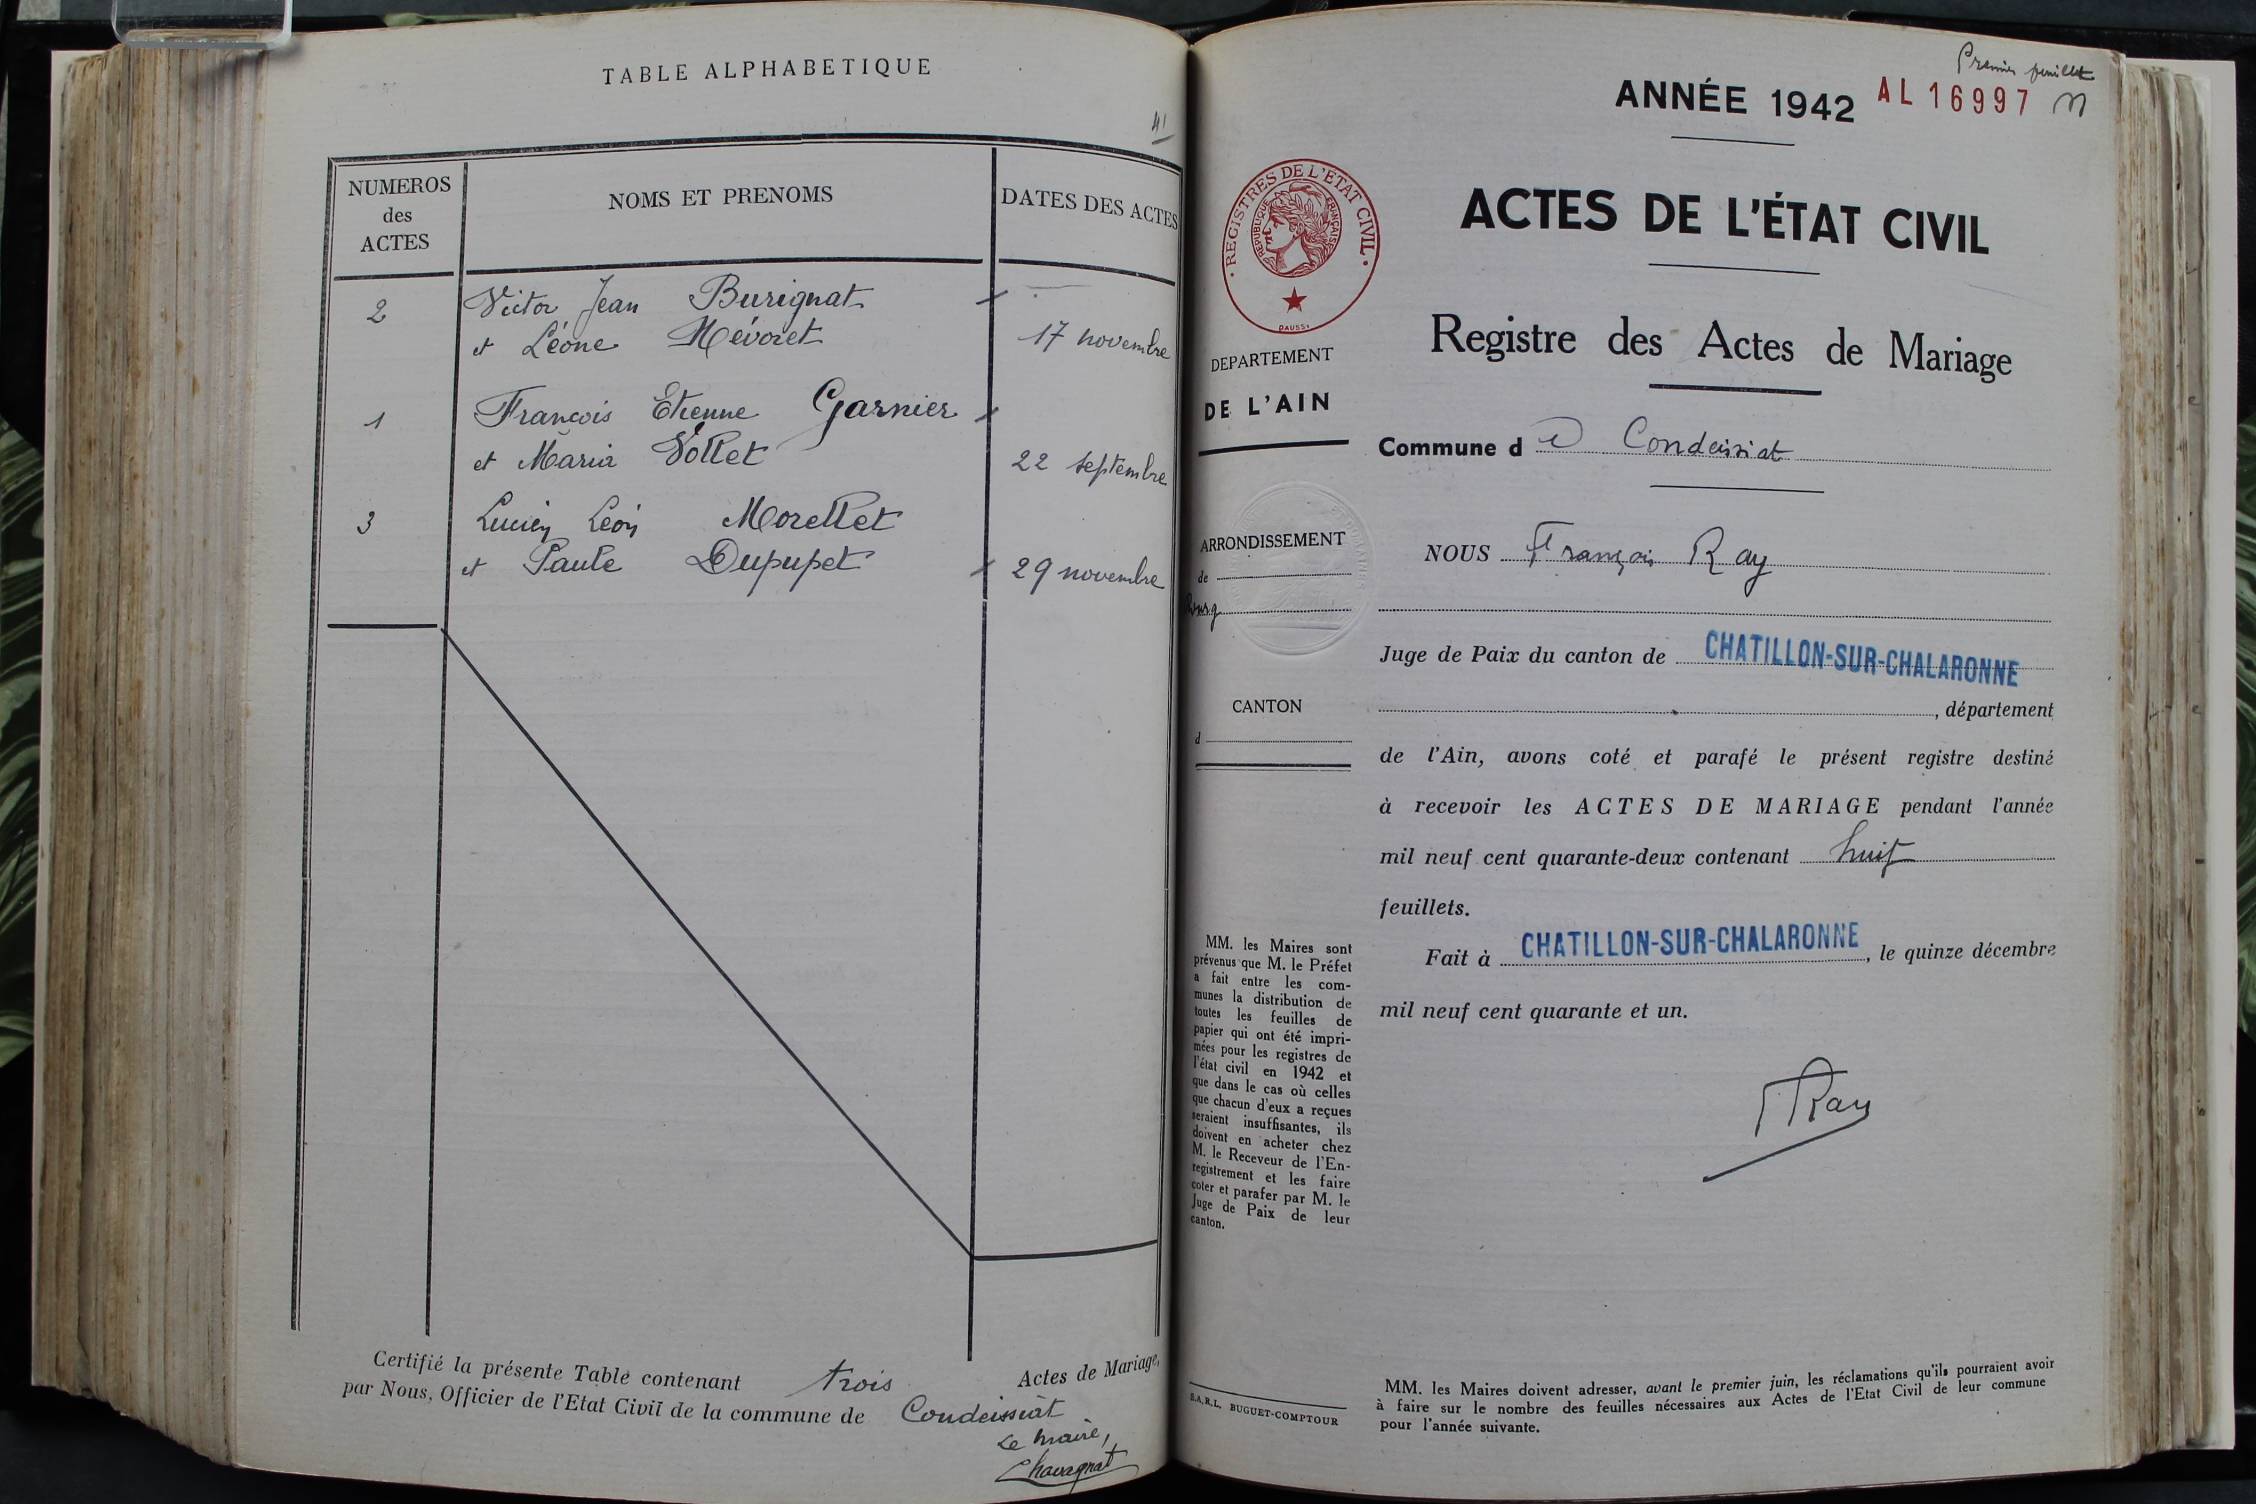 TABLE ALPHABETIQUE
41
NUMEROS
des
ACTES
NOMS ET PRENOMS
DATES DES ACTES
2 Victor Jean Burignat
et Léone Mévoret 17 novembre
1 François Etienne Garnier
et Maria Vollet 22 septembre
3 Lucien Léon Morellet
et Paule Dupupet 29 novembre
Certifié la présente Table contenant trois Actes de Mariage,
par Nous, Officier de l'Etat Civil de la commune de Condeissiat
Le maire,
Chavagnat
Premier feuillet
ANNÉE 1942 AL 16997
REGISTRES DE L'ETAT CIVIL
REPUBLIQUE FRANÇAISE
DAUSSY
ACTES DE L'ÉTAT CIVIL
Registre des Actes de Mariage
DEPARTEMENT
DE L'AIN
Commune d e Condeissiat
ARRONDISSEMENT
de
Bourg
CANTON
d
NOUS François Ray
Juge de Paix du canton de CHATILLON-SUR-CHALARONNE
, département
de l'Ain, avons coté et parafé le présent registre destiné
à recevoir les ACTES DE MARIAGE pendant l'année
mil neuf cent quarante-deux contenant huit
feuillets.
Fait à CHATILLON-SUR-CHALARONNE, le quinze décembre
mil neuf cent quarante et un.
FRay
MM. les Maires sont
prévenus que M. le Préfet
a fait entre les com-
munes la distribution de
toutes les feuilles de
papier qui ont été impri-
mées pour les registres de
l'état civil en 1942 et
que dans le cas où celles
que chacun d'eux a reçues
seraient insuffisantes, ils
doivent en acheter chez
M. le Receveur de l'En-
registrement et les faire
coter et parafer par M. le
Juge de Paix de leur
canton.
S.A.R.L. BUGUET-COMPTOUR
MM. les Maires doivent adresser, avant le premier juin, les réclamations qu'ils pourraient avoir
à faire sur le nombre des feuilles nécessaires aux Actes de l'Etat Civil de leur commune
pour l'année suivante.